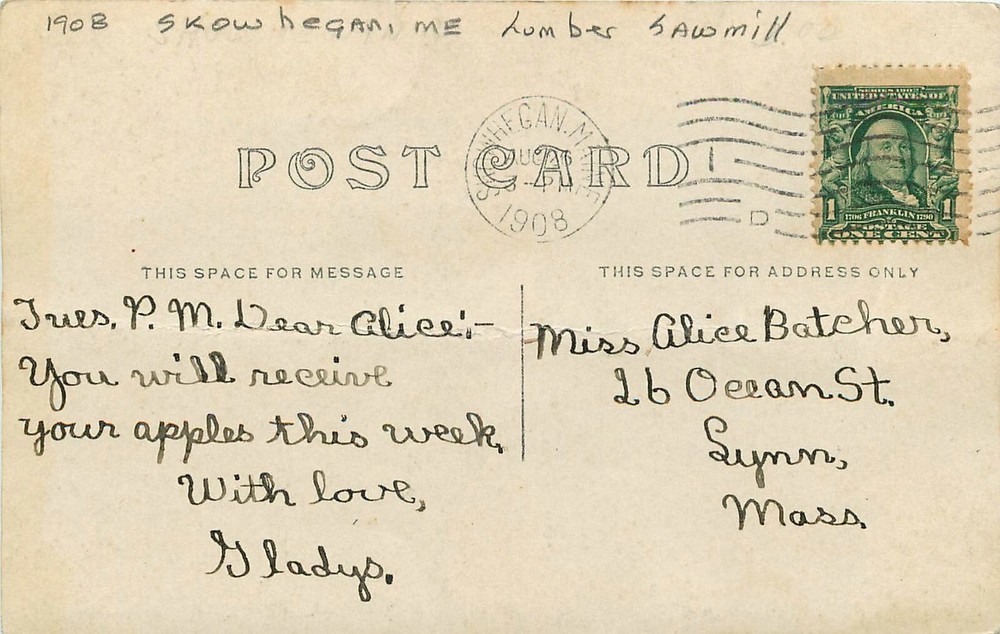 1908 SKOWhEGAN, ME Lumber SAWmill
SERIES 1902
UNITED STATES OF
AMERICA
1 1706 FRANKLIN 1790 1
POSTAGE
ONE CENT
SKOWHEGAN, MAINE
AUG
1908
1
D
POST CARD
THIS SPACE FOR MESSAGE
Tues. P. M. Dear Alice:-
You will receive
your apples this week.
With love,
Gladys.
THIS SPACE FOR ADDRESS ONLY
Miss Alice Batcher,
26 Ocean St.
Lynn,
Mass.